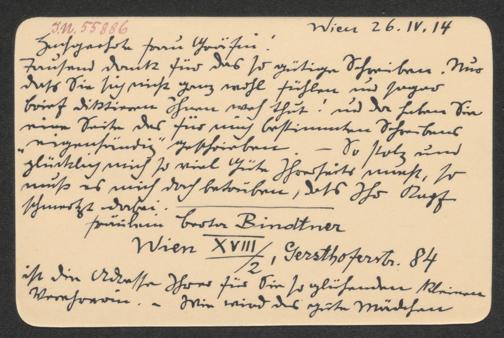 I.N. 55886
Wien 26.IV.14
Hochgeehrte Frau Gräfin!
Tausend Dank für das so gütige Schreiben. Nur
daß Sie sich nicht ganz wohl fühlen und sogar
Brief diktieren Ihnen weh thut! und da haben Sie
eine Seite des für mich bestimmten Schreibens
„eigenhändig" geschrieben. — So stolz und
glücklich mich so viel Güte Ihrerseits macht, so
muß es mich doch betrüben, daß Ihr Kopf
schmerzt dabei.
Fräulein Berta Bindtner
Wien XVIII/2, Gersthoferstr. 84
ist die Adresse Ihrer für Sie so glühenden kleinen
Verehrerin. – Wie wird das gute Mädchen